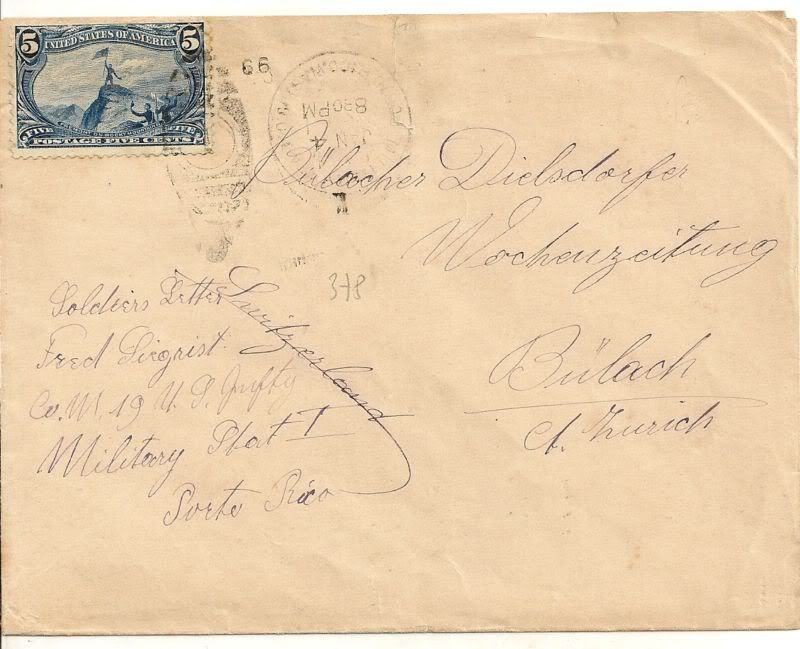 5 UNITED STATES OF AMERICA 5
FIVE FIVE
POSTAGE FIVE CENTS
99
8 30 PM
JAN 4
Bülacher Dielsdorfer
Wochenzeitung
Bülach
Ct. Zurich
Switzerland
378
Soldiers Letter
Fred Siegrist
Co. M, 19 U. S. Infty
Military Stat I
Porto Rico